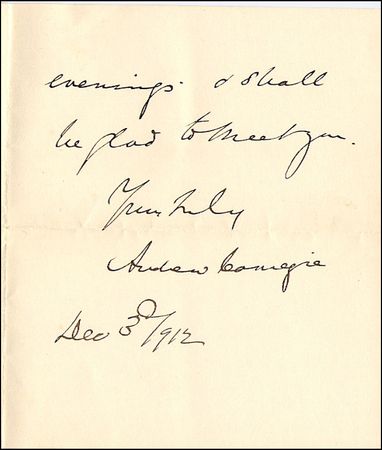 evenings & shall
be glad to meet you.
Yours truly
Andrew Carnegie
Dec 3d/1912